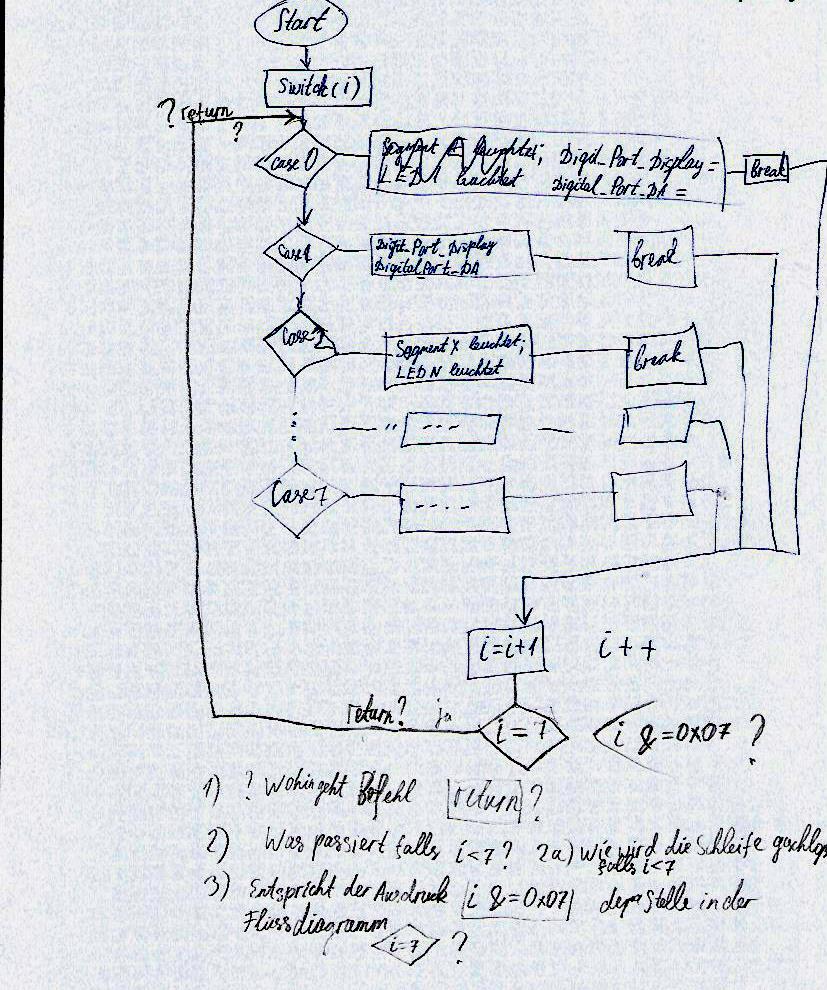 Start
Switch(i)
? return
?
case 0
Segment E leuchtet; Digit_Port_Display =
LED 1 leuchtet Digital_Port_DA =
break
case 1
Digit_Port_Display
Digital_Port_DA
break
Case 2
Segment X leuchtet;
LED N leuchtet
break
" ---
Case 7
----
i=i+1 i++
return? ja
i=7 i &=0x07 ?
1) ? Wohin geht Befehl return?
2) Was passiert falls i<7? 2a) Wie wird die Schleife
falls i<7
3) Entspricht der Ausdruck i &=0x07 der Stelle in der
Flussdiagramm
i=7 ?